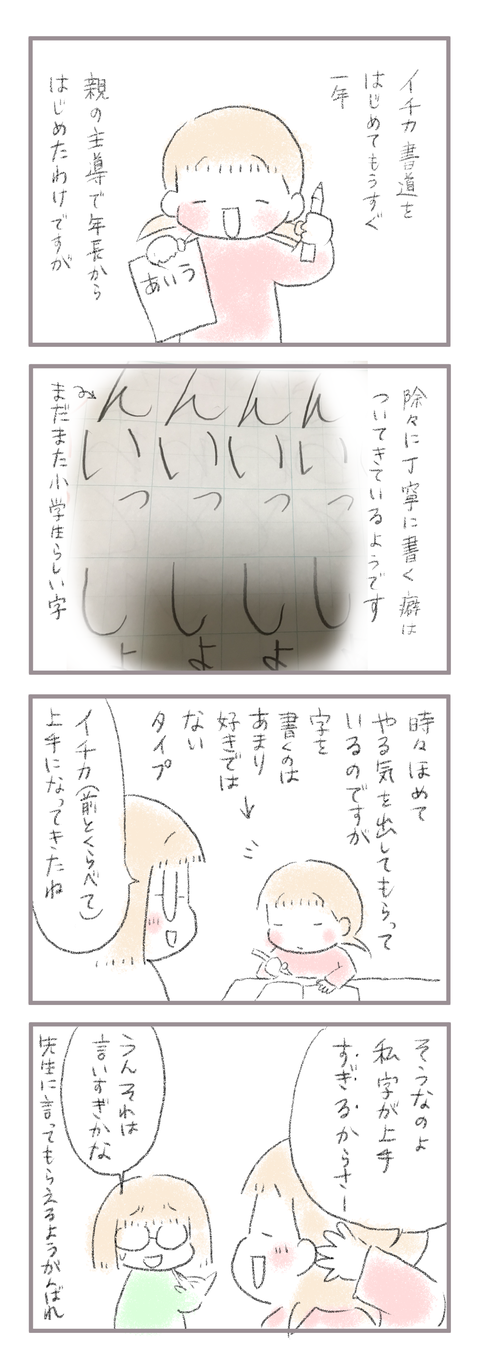 イチカ書道を
はじめてもうすぐ
一年
あいう
親の主導で年長から
はじめたわけですが
除々に丁寧に書く癖は
ついてきているようです
ん ん ん ん
い い い い
っ っ っ っ
し し し し
ょ ょ ょ
まだまた小学生らしい字
時々ほめて
やる気を出してもらって
いるのですが
字を
書くのは
あまり
好きでは
ない
タイプ
イチカ(前とくらべて)
上手になってきたね
そうなのよ
私字が上手
すぎるからさー
うんそれは
言いすぎかな
先生に言ってもらえるようがんばれ